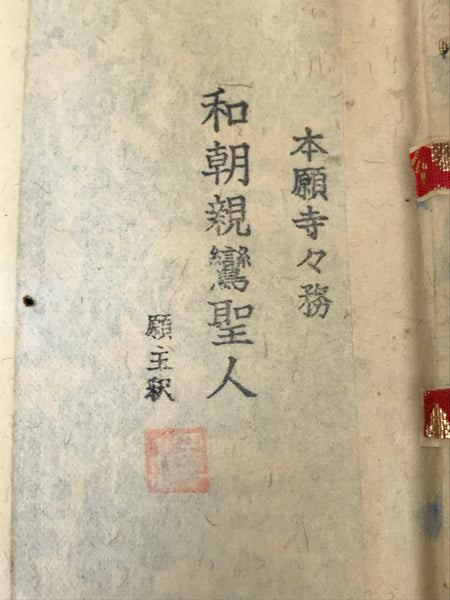 本願寺々務
和朝親鸞聖人
願主釈